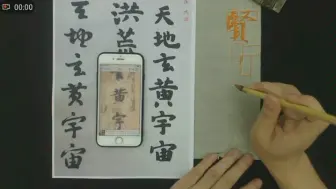 00:00
賢
天地玄黃宇宙
洪荒
黃宇
地玄黄宇宙